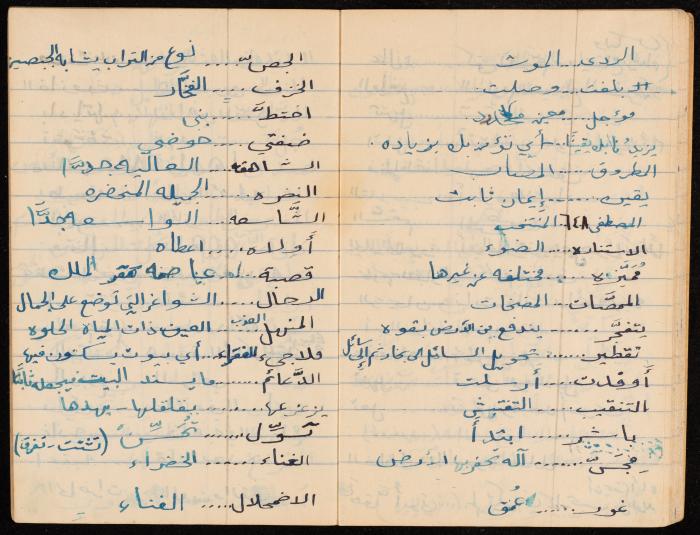 الردى..... الموت
بلغت..... وصلت
مؤجل..... معين
يزيدُ نابك يقينًا..... أي تؤمن بك بزياده
الطروق..... 
يقين..... إيمان ثابت
المصطفى ٦٤٨ المنتخب
الاستناره..... الضوء
مُمَيَّزه..... مختلفه عن غيرها
الممصَّات..... المضخات
يتفجَّر..... يندفع من الأرض بقوه
تقطير..... تحويل السائل الى بخار ثم إلى سائل
أوفدت..... أرسلت
التنقيب..... التفتيش
باشر..... ابتدأ
مِجَسّ..... آله تحفر بها الأرض
غور..... عُمق
الجصّ..... نوع من التراب يشابه الجبصين
الخزف..... الفخَّار
اختطَّ..... بنى
ضفتي..... حوضي
الشاهقه..... العاليه جدًّا
النضره..... الجميله المخضره
الشَّاسعه..... الواسعه جدًّا
أولاه..... اعطاه
قصبة..... عاصمه مقر الملك
الرحال..... الشواغر التي توضع على الجمال
المنهل العذب..... العين ذات المياه الحلوه
ملاجىء الفقراء..... أي بيوت يسكنون فيها
الدَّعائم..... ما يسند البيت فيجعله ثابتًا
يزعزعها..... يقلقلها - يهدها
تحوّل..... (تشتت - تفرق)
الغناء..... الخضراء
الاضمحلال..... الفناء